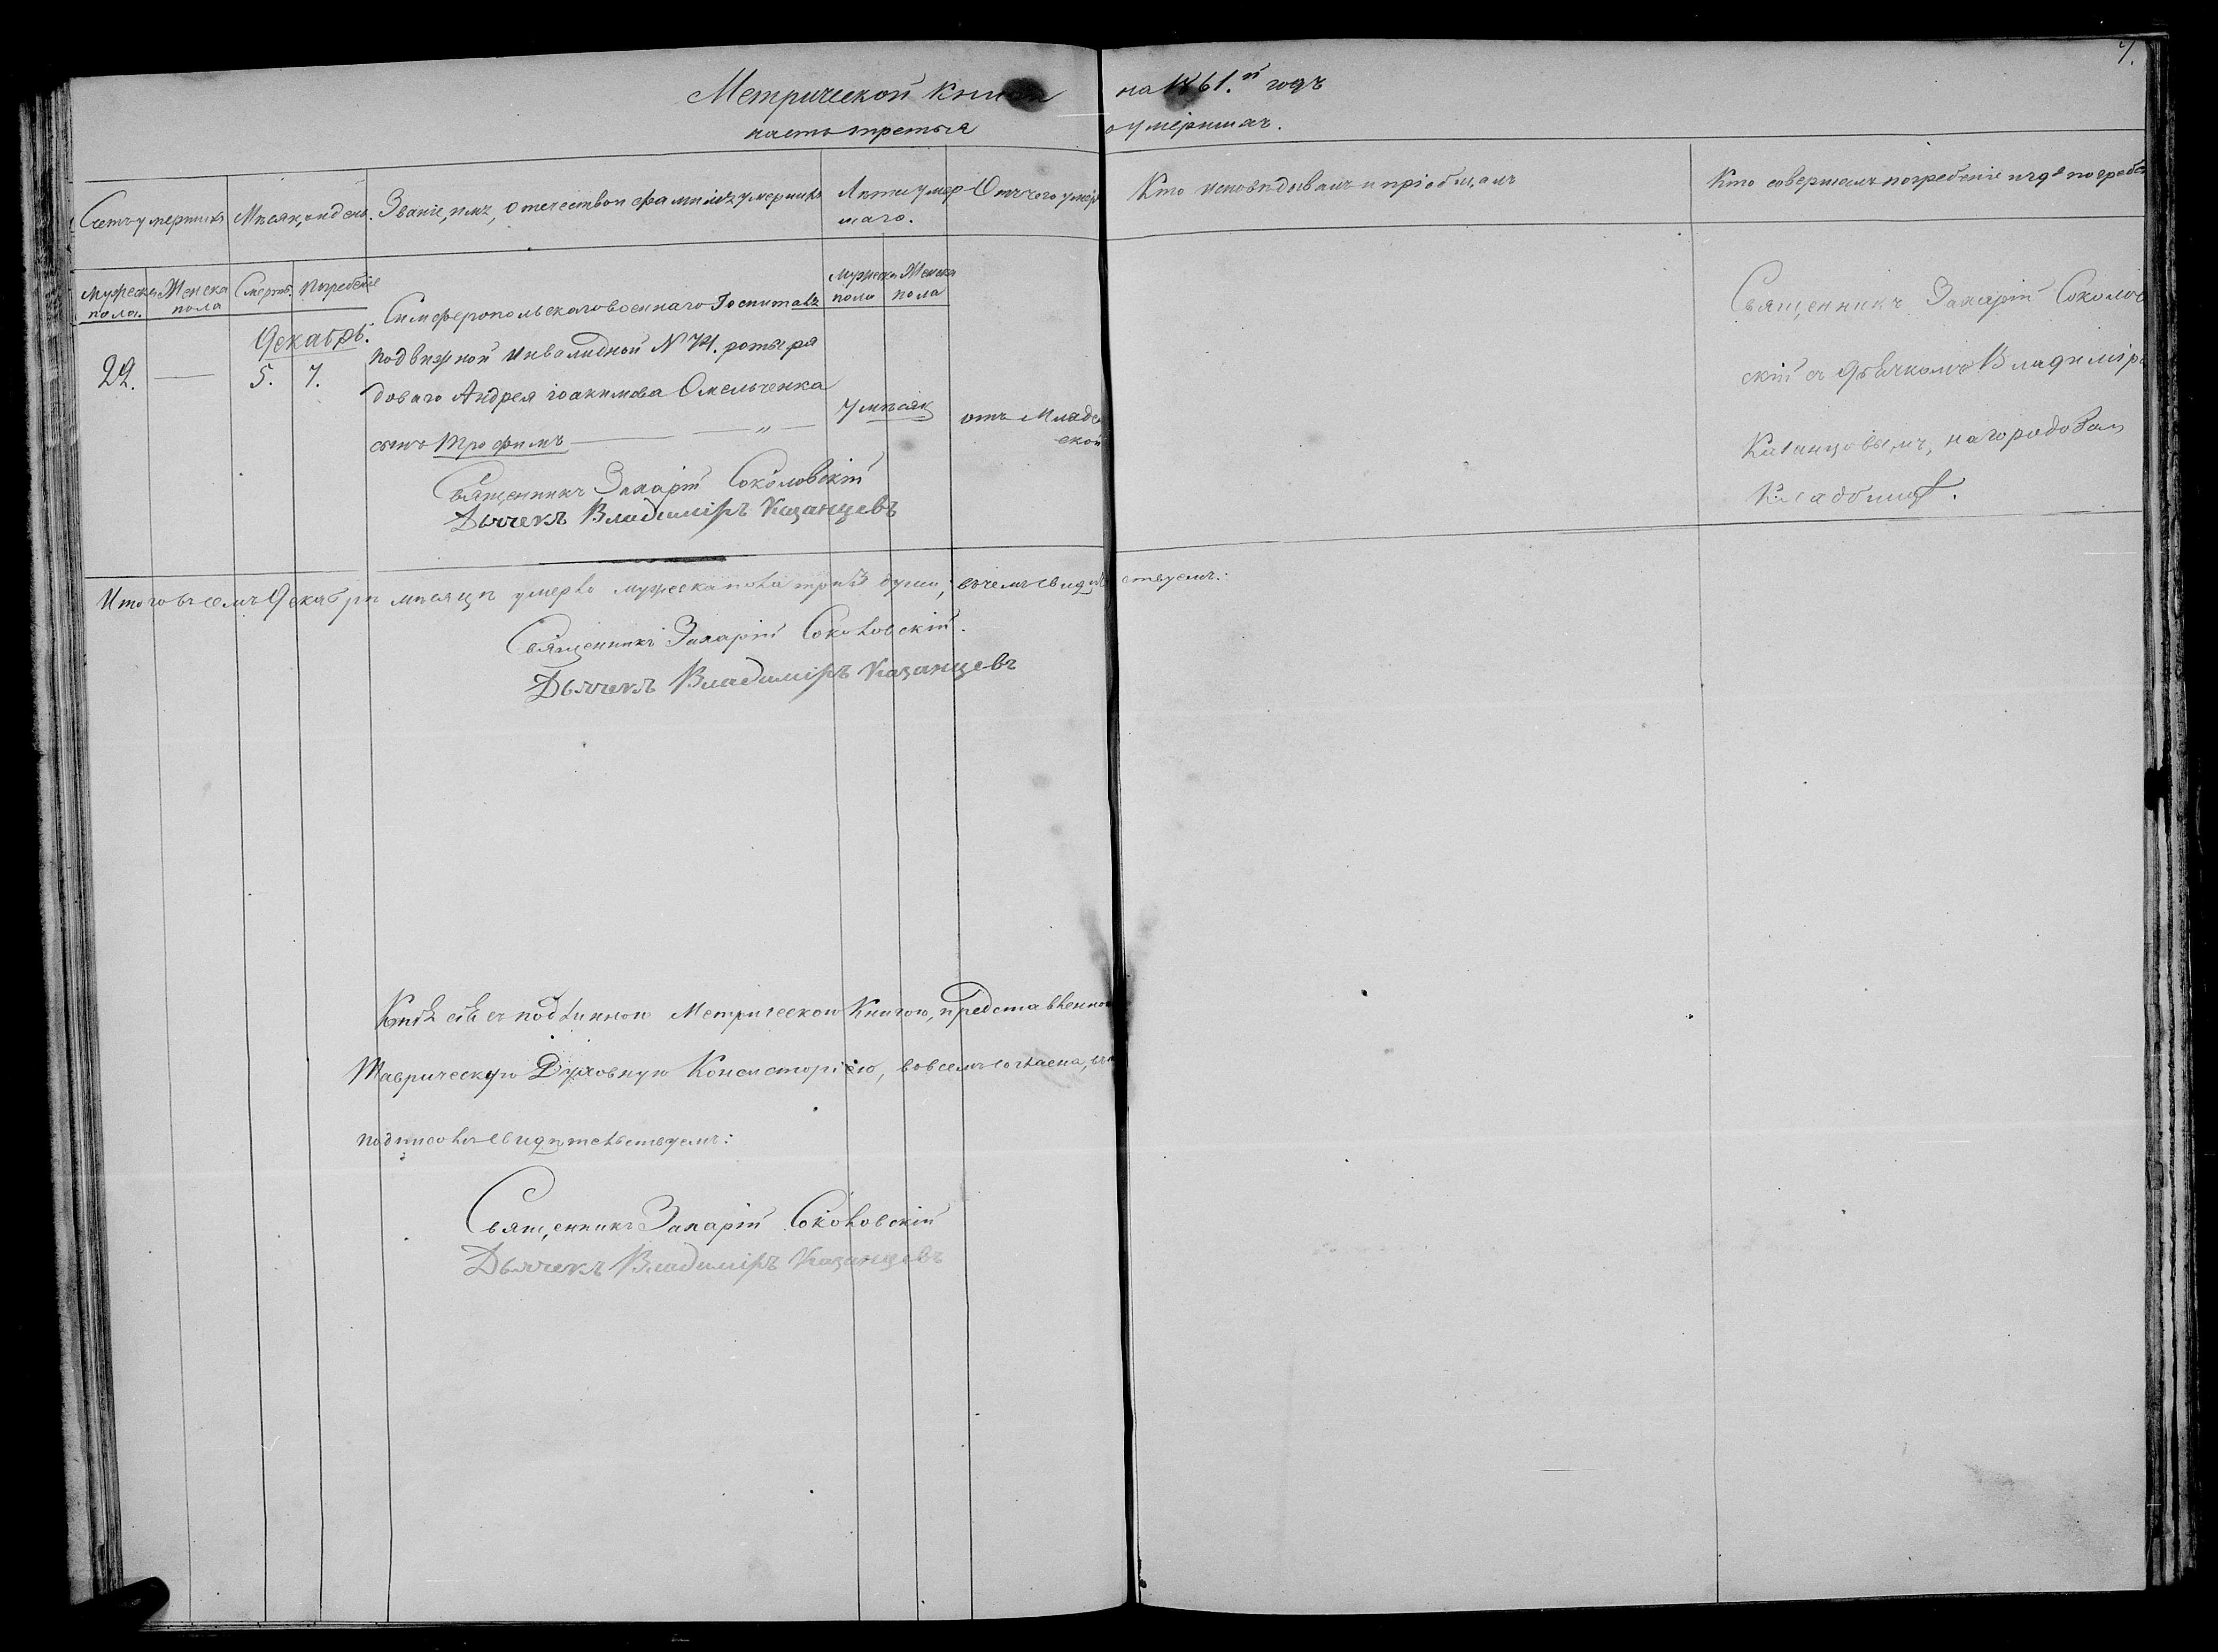 7.
Метрической книги на 1861.й годъ
часть третья о умершихъ.
Счетъ умершихъ
Мѣсяцъ и день.
Званіе, имя, отечество и фамилія умершихъ
Лѣта умер
шаго.
Отъ чего умер
Кто исповѣдывалъ и пріобщалъ
Кто совершалъ погребеніе и гдѣ погребе
Мужеска
пола.
Женска
пола
Смерть.
Погребеніе
Мужеска
пола
Женска
пола
Декабрь.
22. — 5. 7.
Симферопольскаго военнаго Госпиталя
подвижной инвалидной №74. роты ря
доваго Андрея іоакимова Омельченка
сынъ Трофимъ — „ —
7 мѣсяц
отъ Младен
ской
Священникъ Захарій Соколов
скій съ дьячкомъ Владиміро
Казанцовымъ, на городовом
Кладбищѣ.
Священникъ Захарій Соколовскій
Дьячекъ Владиміръ Казанцевъ
Итого въ семъ Декабрѣ мѣсяцѣ умерло мужеска пола души; въ чемъ свидѣтельствуемъ:
Священникъ Захарій Соколовскій.
Дьячекъ Владиміръ Казанцевъ
сія съ подлинною Метрическою Книгою, представленною
Таврическую Духовную Консисторію, во всемъ согласна,
подписомъ свидѣтельствуемъ:
Священникъ Захарій Соколовскій
Дьячекъ Владиміръ Казанцевъ